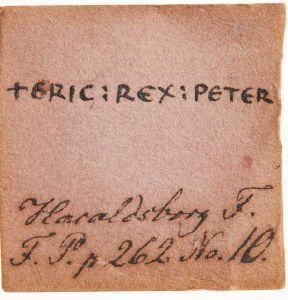 +ERIC:REX:PETER
Haraldsborg F.
F. P. p. 262 No. 10.